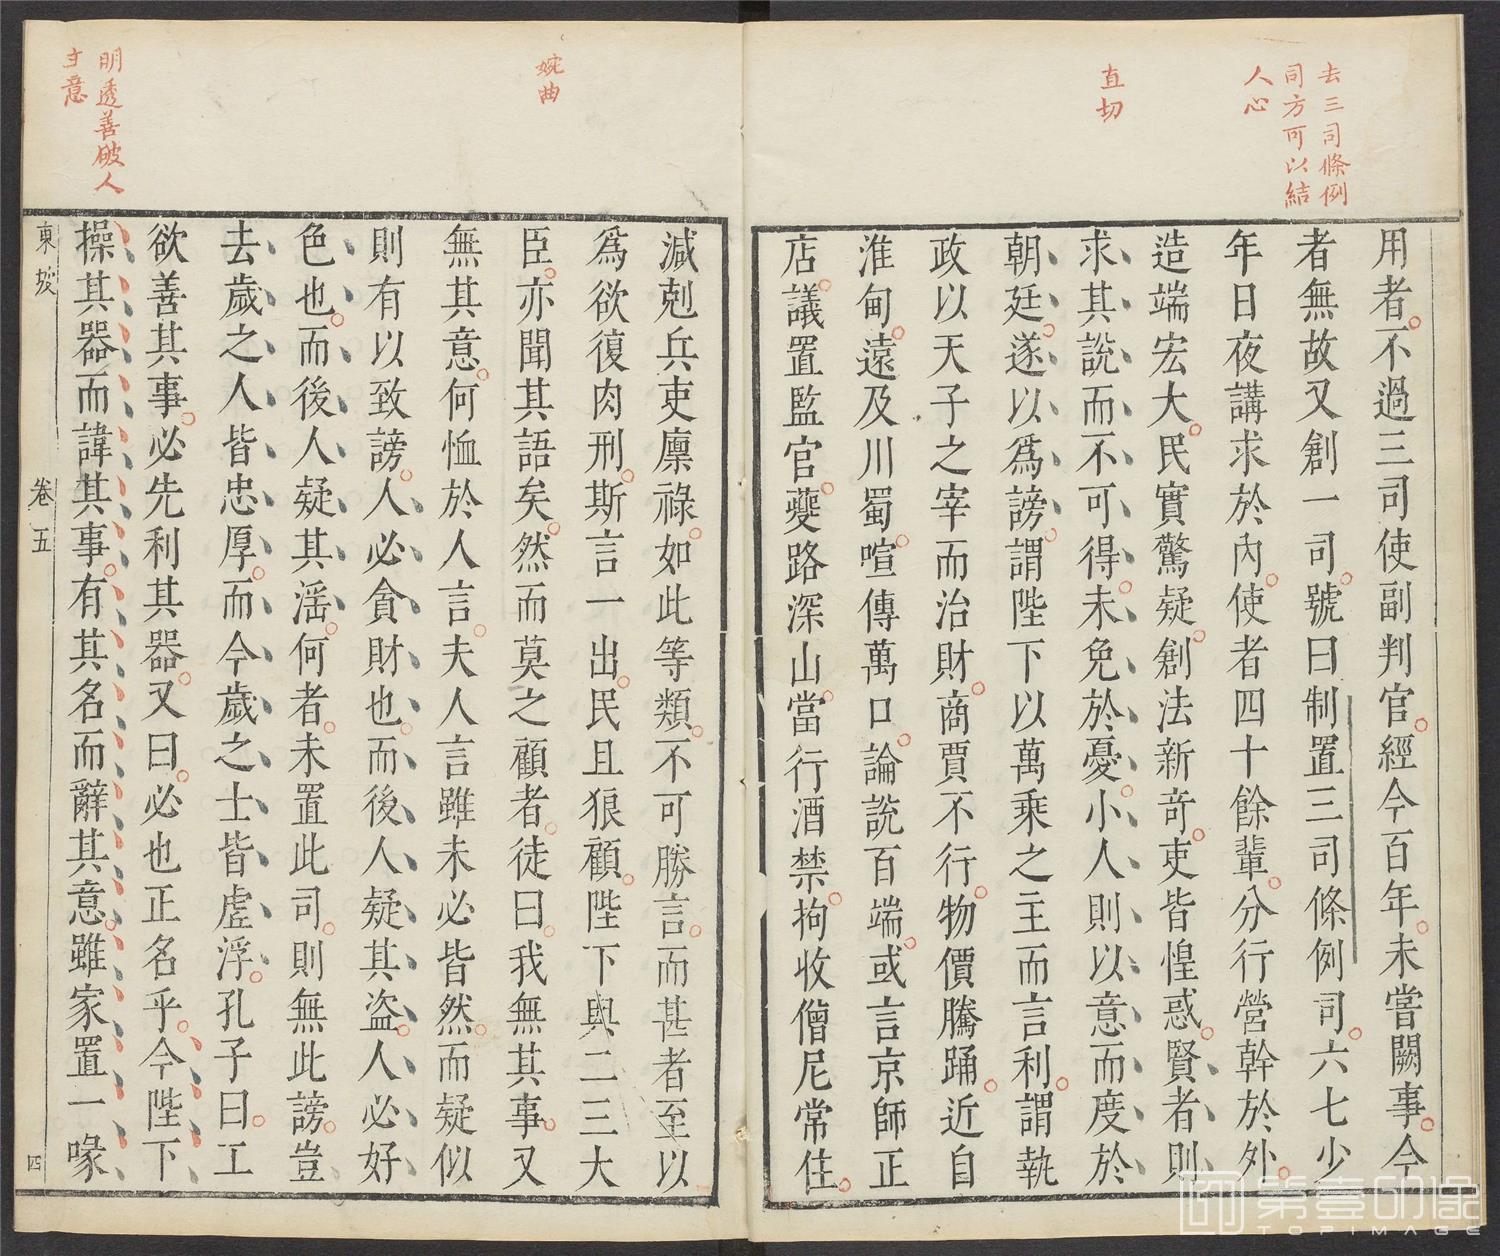 去三司條例
司方可以結
人心
直切
用者不過三司使副判官經今百年未嘗闕事今
者無故又創一司號曰制置三司條例司六七少
年日夜講求於內使者四十餘輩分行營幹於外
造端宏大民實驚疑創法新奇吏皆惶惑賢者則
求其說而不可得未免於憂小人則以意而度於
朝廷遂以爲謗謂陛下以萬乘之主而言利謂執
政以天子之宰而治財商賈不行物價騰踊近自
淮甸遠及川蜀喧傳萬口論說百端或言京師正
店議置監官夔路深山當行酒禁拘收僧尼常住
婉曲
減剋兵吏廩祿如此等類不可勝言而甚者至以
爲欲復肉刑斯言一出民且狼顧陛下與二三大
臣亦聞其語矣然而莫之顧者徒曰我無其事又
無其意何恤於人言夫人言雖未必皆然而疑似
則有以致謗人必貪財也而後人疑其盜人必好
色也而後人疑其滛何者未置此司則無此謗豈
去歲之人皆忠厚而今歲之士皆虛浮孔子曰工
欲善其事必先利其器又曰必也正名乎今陛下
操其器而諱其事有其名而辭其意雖家置一喙
明透善破人
意
東坡
卷五
四
第壹印像
TOPIMAGE